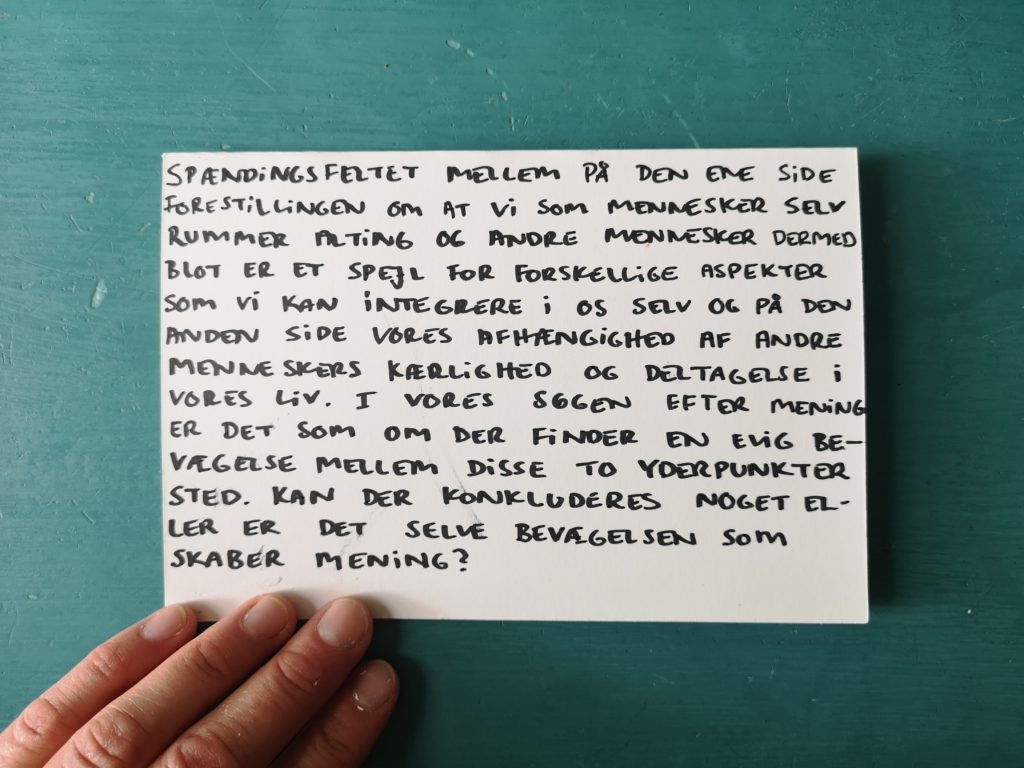 SPÆNDINGSFELTET MELLEM PÅ DEN ENE SIDE
FORESTILLINGEN OM AT VI SOM MENNESKER SELV
RUMMER ALTING OG ANDRE MENNESKER DERMED
BLOT ER ET SPEJL FOR FORSKELLIGE ASPEKTER
SOM VI KAN INTEGRERE I OS SELV OG PÅ DEN
ANDEN SIDE VORES AFHÆNGIGHED AF ANDRE
MENNESKERS KÆRLIGHED OG DELTAGELSE I
VORES LIV. I VORES SØGEN EFTER MENING
ER DET SOM OM DER FINDER EN EVIG BE-
VÆGELSE MELLEM DISSE TO YDERPUNKTER
STED. KAN DER KONKLUDERES NOGET EL-
LER ER DET SELVE BEVÆGELSEN SOM
SKABER MENING?